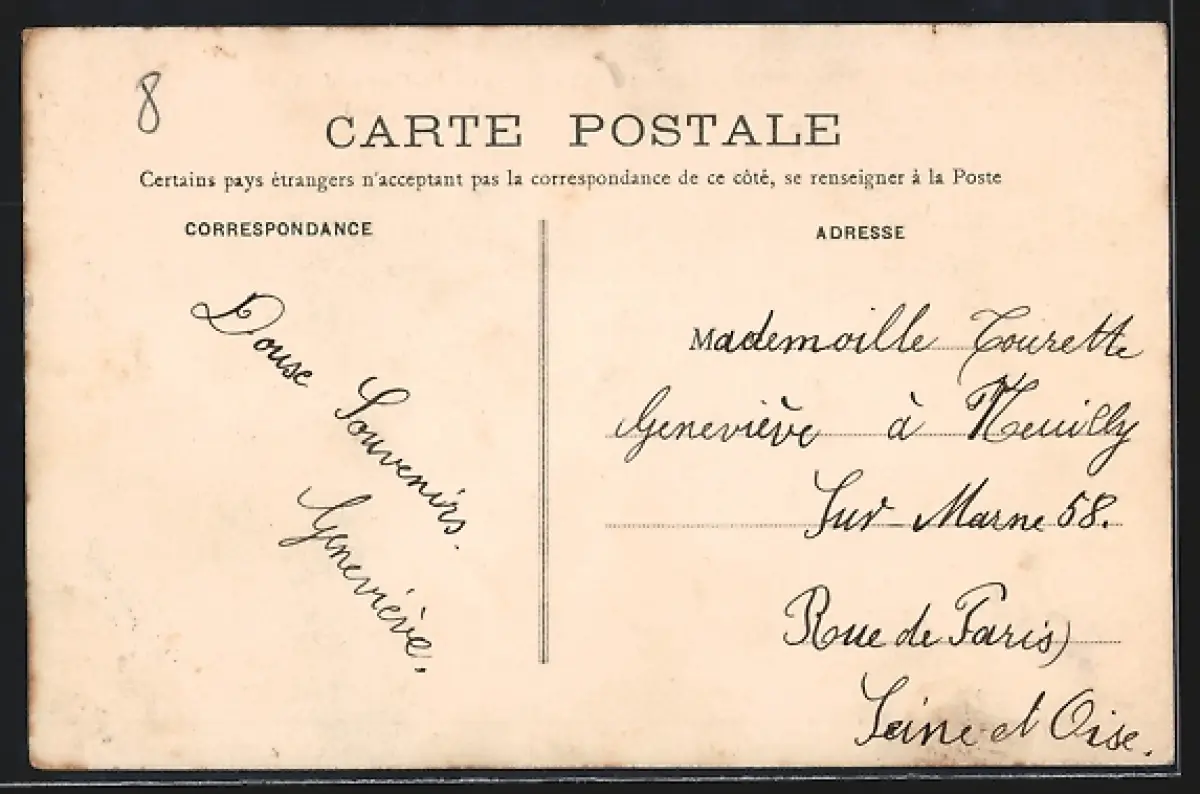 8
CARTE POSTALE
Certains pays étrangers n'acceptant pas la correspondance de ce côté, se renseigner à la Poste
CORRESPONDANCE
Douse Souvenirs.
Geneviève.
ADRESSE
Mademoille Tourette
Geneviève à Neuilly
Sur-Marne 58.
Rue de Paris)
Seine et Oise.